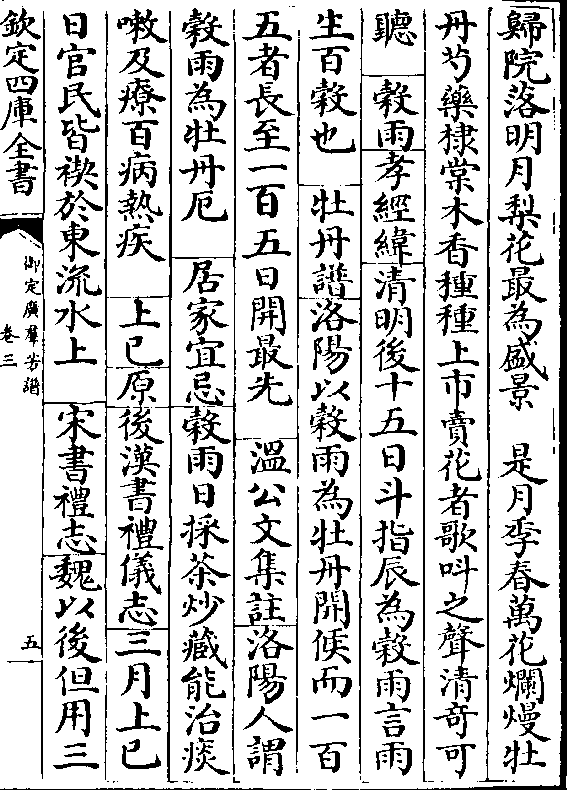 歸院落明月梨花最為盛景　是月季春萬花爛熳牡
丹芍藥棣棠木香種種上市賣花者歌呌之聲清奇可
聽　穀雨孝經緯清明後十五日斗指辰為穀雨言雨
生百穀也　牡丹譜洛陽以穀雨為牡丹開候而一百
五者長至一百五日開最先　溫公文集註洛陽人謂
穀雨為牡丹厄　居家宜忌穀雨日採茶炒藏能治痰
嗽及療百病熱疾　上巳原後漢書禮儀志三月上巳
日官民皆禊於東流水上　宋書禮志魏以後但用三
欽定四庫全書
御定廣羣芳譜
卷三
五